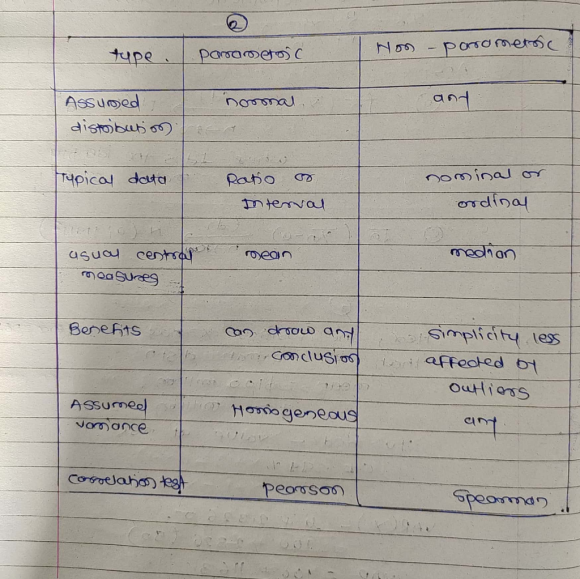 ②
type. parametric Non-parametric
Assumed normal any
distribution
Typical data Ratio or nominal or
Interval ordinal
usual central mean median
measures
Benefits can draw any simplicity less
conclusion affected by
outliers
Assumed Homogeneous any
variance
correlation test pearson Spearman